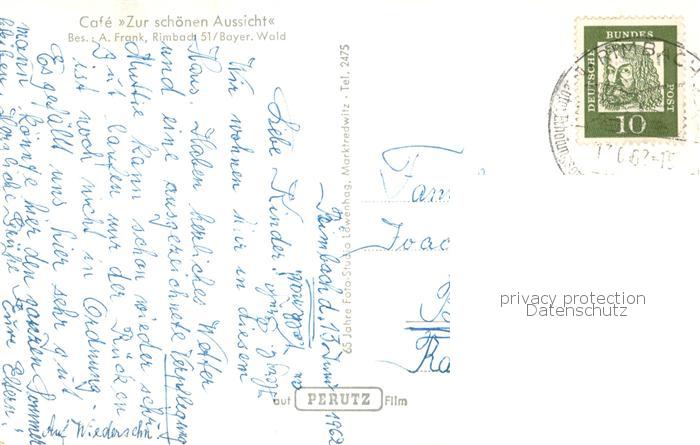 Café »Zur schönen Aussicht«
Bes.: A. Frank, Rimbach 51/Bayer. Wald
Rimbach d. 13. Juni 1962
Liebe Kinder!
Wir wohnen hier in diesem
Haus. Haben herrliches Wetter
und eine ausgezeichnete Verpflegung
Muttie kann schon wieder sehr
gut laufen nur der Rücken
ist noch nicht in Ordnung.
Es gefällt uns hier sehr gut
mann könnte hier den ganzen Sommer
bleiben. Herzliche Grüße Eure Eltern!
Auf Wiedersehn!
65 Jahre Foto-Studio Löwenhag, Marktredwitz · Tel. 2475
auf PERUTZ Film
Fam
Joac
DEUTSCHE BUNDES POST
10
RIMBACH
privacy protection
Datenschutz